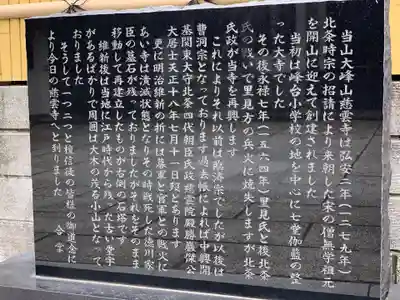 当山大峰山慈雲寺は弘安二年(一二七九年)
北条時宗の招請により来朝した宋の僧無学祖元
を開山に迎えて創建されました
当初は峰台小学校の地を中心に七堂伽藍の整
った大寺でした
その後永禄七年(一五六四年)里見氏と後北条
氏の戦いで里見方の兵火に焼失しますが北条
氏政が当寺を再興します
これによりそれ以前は臨済宗でしたが以後は
曹洞宗となっております過去帳によれば中興開
基関東大守北条四代朝臣氏政慈雲院殿勝巌傑公
大居士天正十八年七月十一日歿とあります
更に明治維新の折には幕軍と官軍との戦火に
あい寺は潰滅状態となりその時戦死した徳川家
臣の墓石が残っておりましたがそれをそのまま
移動して再建立したものが右側の石塔です
維新後は当地に江戸時代から残った古い堂宇
があるばかりで周囲は大木の茂る小山となって
おりました
そうして一つ二つと檀信徒の皆様の御道念に
より今日の「慈雲寺」へと到りました 合掌